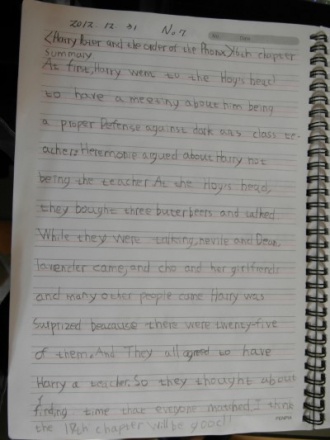 2012. 12. 31 No.7
<Harry Potter and the order of the Phoenix> 16th chapter
summary
At first, Harry went to the Hog's head
to have a meeting about him being
a proper Defense against dark arts class te-
acher. Heremonie argued about Harry not
being the teacher. At the Hog's head,
they bought three buterbeers and talked.
While they were talking, nevile and Dean,
lavender came, and cho and her girlfriend
and many other people came Harry was
surprized beacause there were twenty-five
of them. And They all agreed to have
Harry a teacher. So they thought about
finding time that everyone matched. I think
the 17th chapter will be good!!